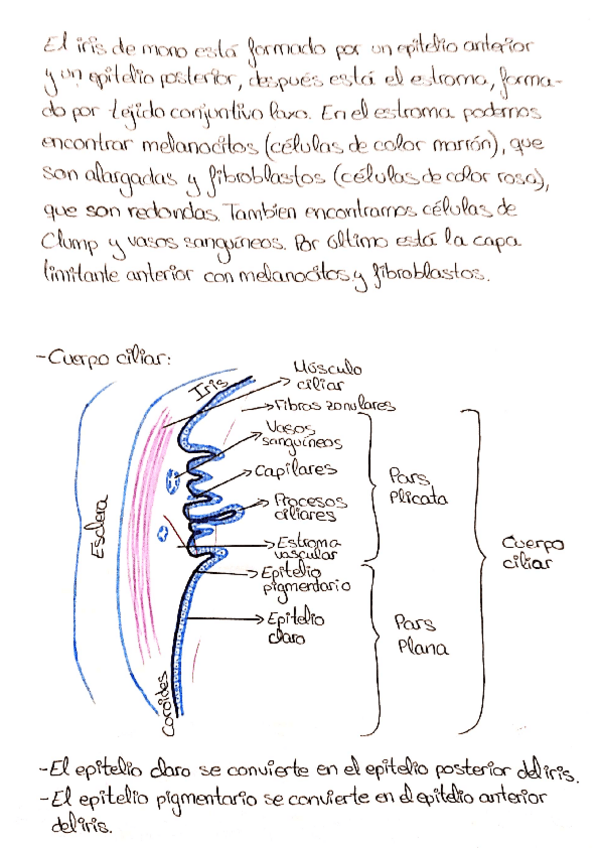 El iris de mono está formado por un epitelio anterior
y un epitelio posterior, después está el estroma, forma-
do por tejido conjuntivo laxo. En el estroma podemos
encontrar melanocitos (células de color marrón), que
son alargadas y fibroblastos (células de color rosa),
que son redondas. Tambien encontramos células de
Clump y vasos sanguíneos. Por último está la capa
limitante anterior con melanocitos y fibroblastos.
-Cuerpo ciliar:
Músculo
ciliar
Iris
Fibras zonulares
Vasos
sanguíneos
Capilares
Procesos
ciliares
Estroma
vascular
Epitelio
pigmentario
Epitelio
claro
Esclera
Coroides
Pars
Plicata
Pars
Plana
Cuerpo
ciliar
-El epitelio claro se convierte en el epitelio posterior del iris.
-El epitelio pigmentario se convierte en el epitelio anterior
del iris.